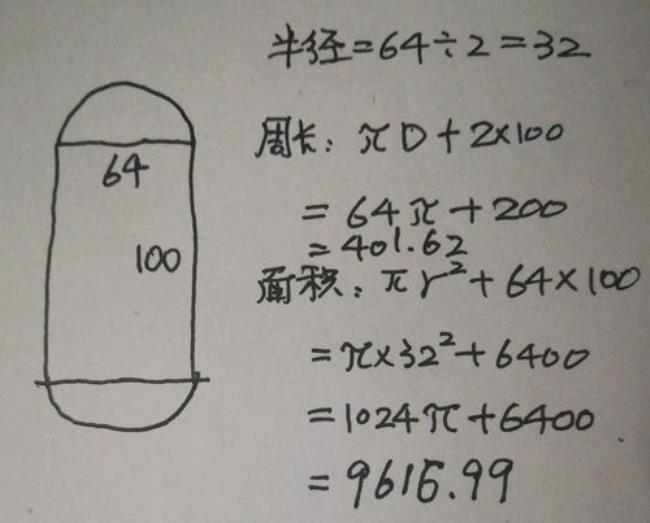 半径=64÷2=32
64
100
周长: πD+2×100
=64π+200
=401.62
面积: πr²+64×100
=π×32²+6400
=1024π+6400
=9615.99